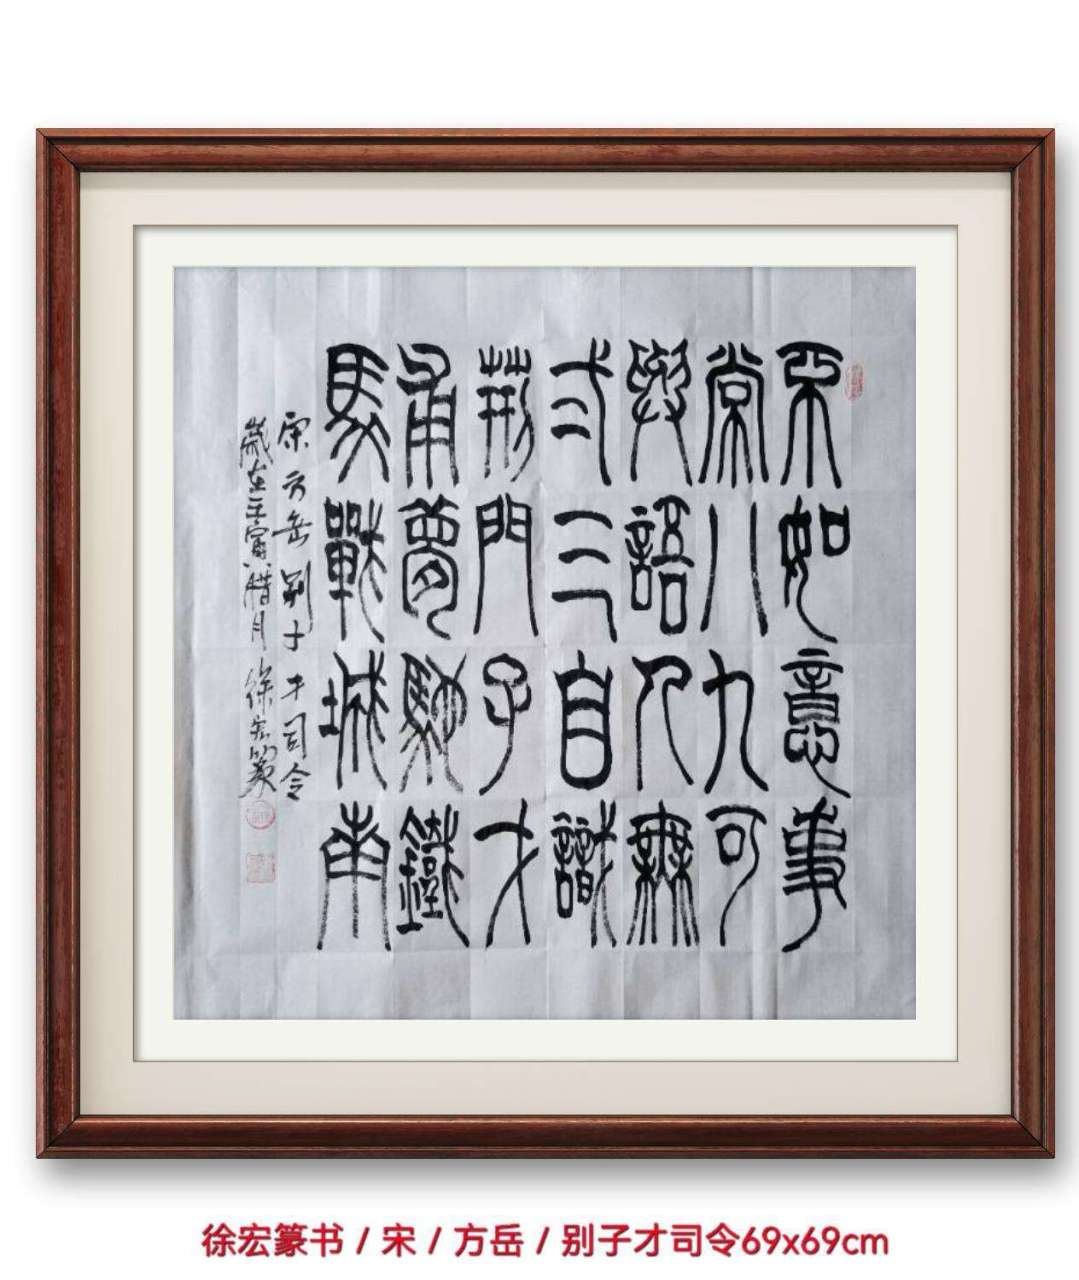 不如意事
常八九可
與語人無
弍三自識
荊門子才
甫夢馳鐵
馬戰城南
宋方岳别子才司令
歲在壬寅腊月徐宏篆
徐宏篆书 / 宋 / 方岳 / 别子才司令69x69cm